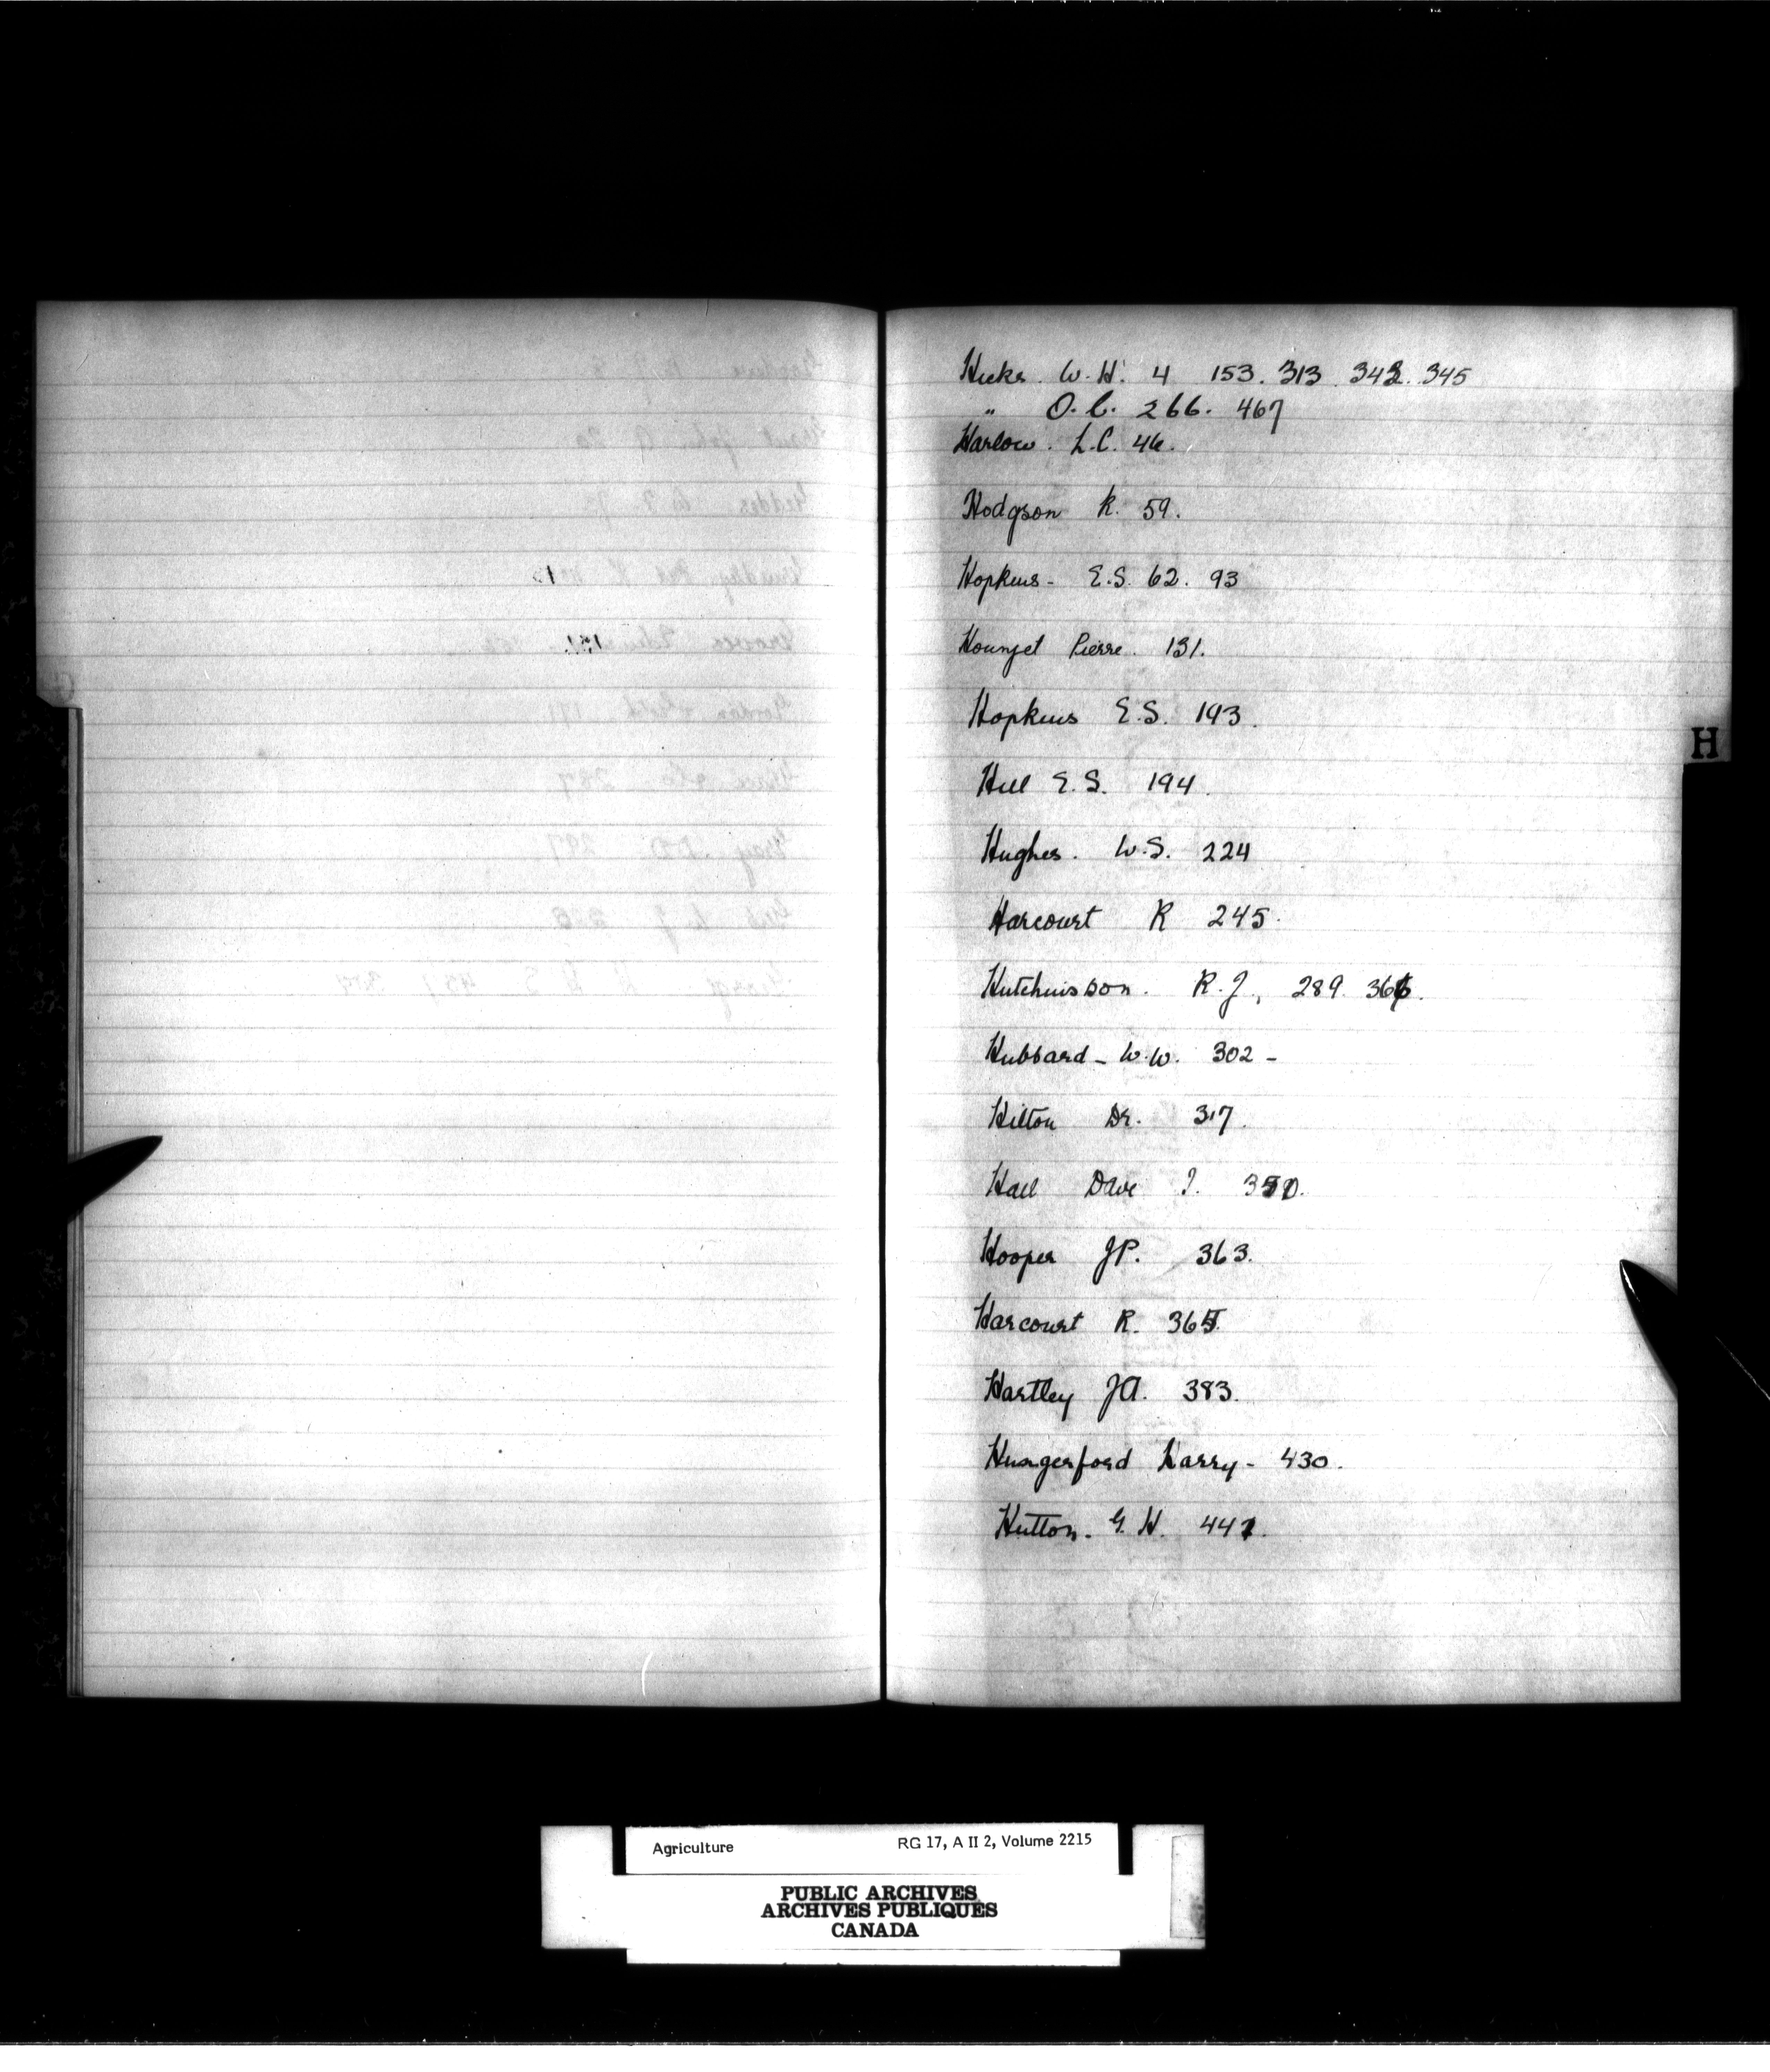 Hicks. W. H. 4 153. 313. 343. 345
" O. C. 266. 467
Harlow. L.C. 46.
Hodgson R. 59.
Hopkins - E.S. 62. 93
Hounjet Pierre. 131.
Hopkins E.S. 193.
Hill E.S. 194.
H
Hughes. W.S. 224
Harcourt R 245.
Hutchinson. R.J, 289. 366.
Hubbard - W.W. 302 -
Hilton Dr. 317.
Hall Dave J.
Hooper JP. 363.
Harcourt R. 365.
Hartley JA. 383.
Hungerford Harry - 430.
Hutton. G. H. 441.
Agriculture RG 17, A II 2, Volume 2215
PUBLIC ARCHIVES
ARCHIVES PUBLIQUES
CANADA